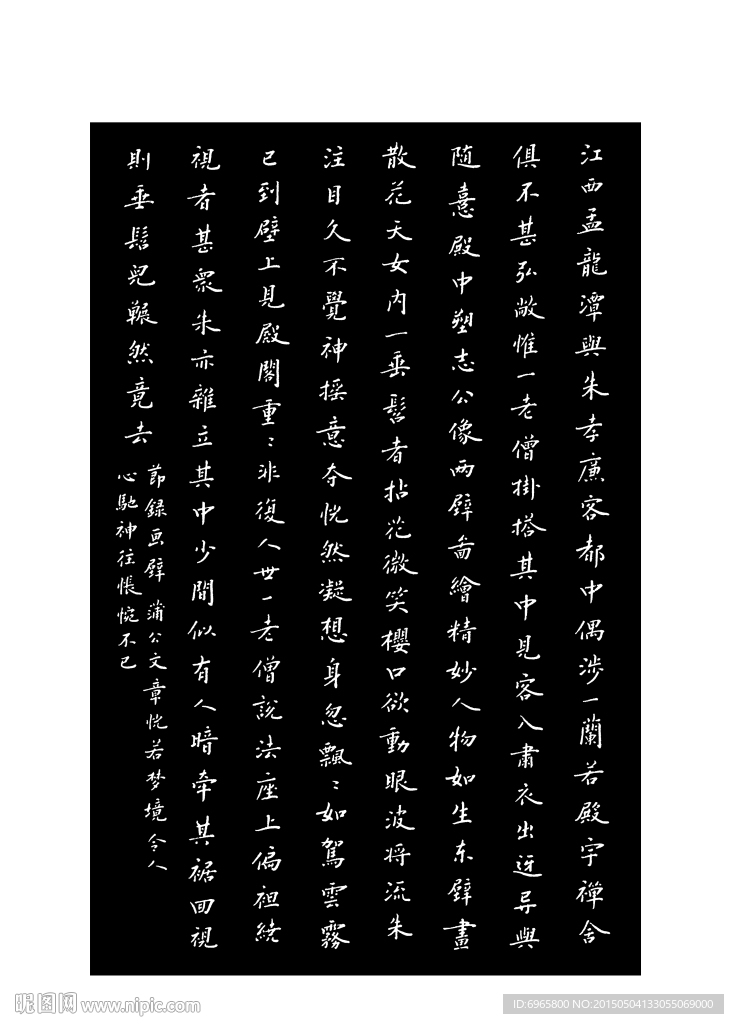 江西孟龍潭與朱孝廉客都中偶涉一蘭若殿宇禪舍
俱不甚弘敞惟一老僧掛搭其中見客入肅衣出迓导與
隨憙殿中塑志公像兩壁啚繪精妙人物如生东壁畫
散花天女内一垂髫者拈花微笑櫻口欲動眼波将流朱
注目久不覺神摇意夺恍然凝想身忽飄〻如駕雲霧
已到壁上見殿閣重〻非復人世一老僧說法座上偏袒繞
視者甚衆朱亦雜立其中少間似有人暗牵其裾回視
則垂髫兒冁然竟去
節録画壁 蒲公文章恍若梦境令人
心馳神往悵惋不已
昵图网 www.nipic.com
ID:6965800 NO:20150504133055069000